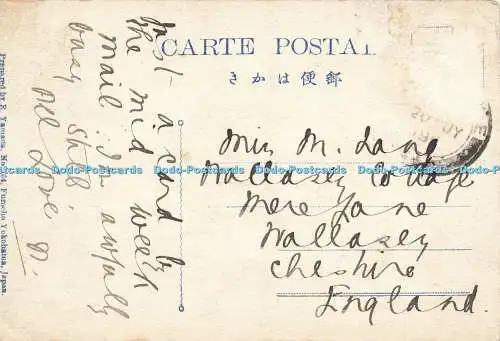 CARTE POSTAL
きかは便郵
Just a card by
the mid week
mail I'm awfully
busy still.
All Love
Miss M. Lang
Wallasey Cottage
Mere Lane
Wallasey
Cheshire
England.
Prepared by S. Yamana, Yokohama, Japan.
Dodo-Postcards Dodo-Postcards Dodo-Postcards Dodo-Postcards